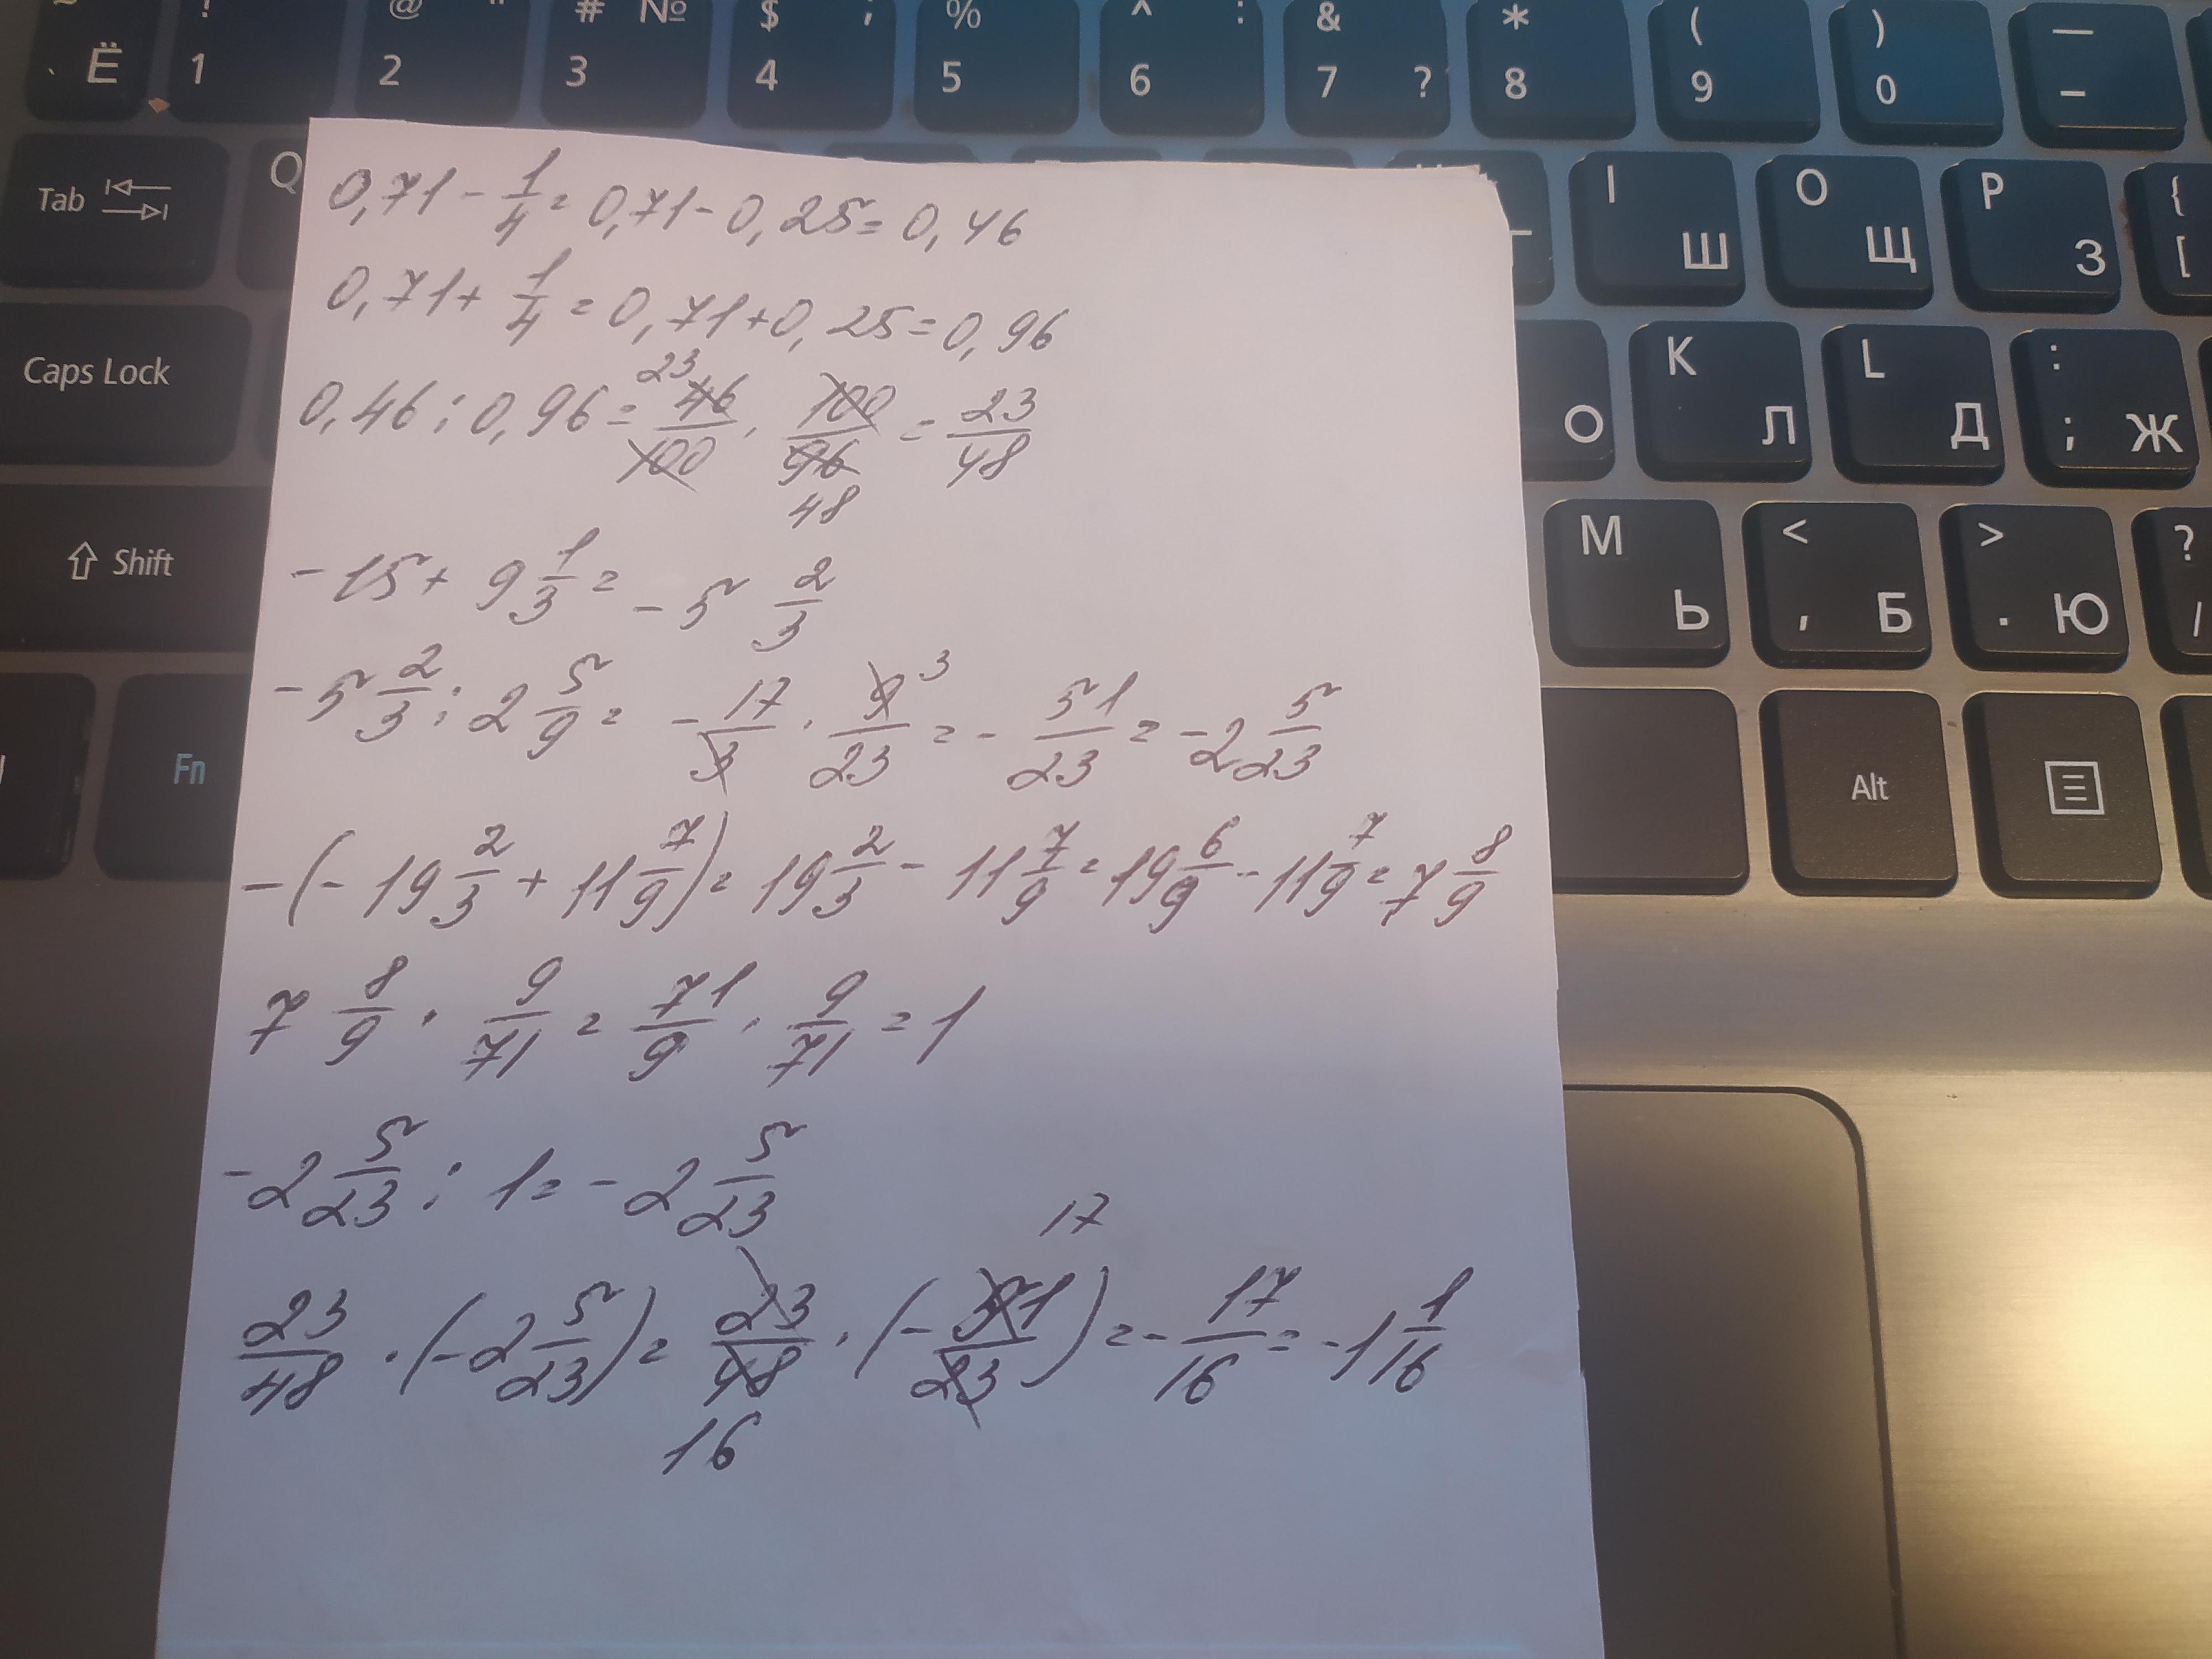 ~ ! @ " # № $ ; % ^ : & * ( ) —
` Ё 1 2 3 4 5 6 7 ? 8 9 0 –
Tab Q I Ш O Щ P З { [
Caps Lock О K Л L Д : ; Ж
Shift M Ь < , Б > . Ю ? /
Fn Alt
0,71 - 1/4 = 0,71 - 0,25 = 0,46
0,71 + 1/4 = 0,71 + 0,25 = 0,96
0,46 : 0,96 = 46/100 · 100/96 = 23/48
23
48
- 15 + 9 1/3 = - 5 2/3
- 5 2/3 : 2 5/9 = - 17/3 · 9/23 = - 51/23 = - 2 5/23
3
- (- 19 2/3 + 11 7/9) = 19 2/3 - 11 7/9 = 19 6/9 - 11 7/9 = 7 8/9
7 8/9 · 9/71 = 71/9 · 9/71 = 1
- 2 5/23 : 1 = - 2 5/23
17
23/48 · (- 2 5/23) = 23/48 · (- 51/23) = - 17/16 = - 1 1/16
16